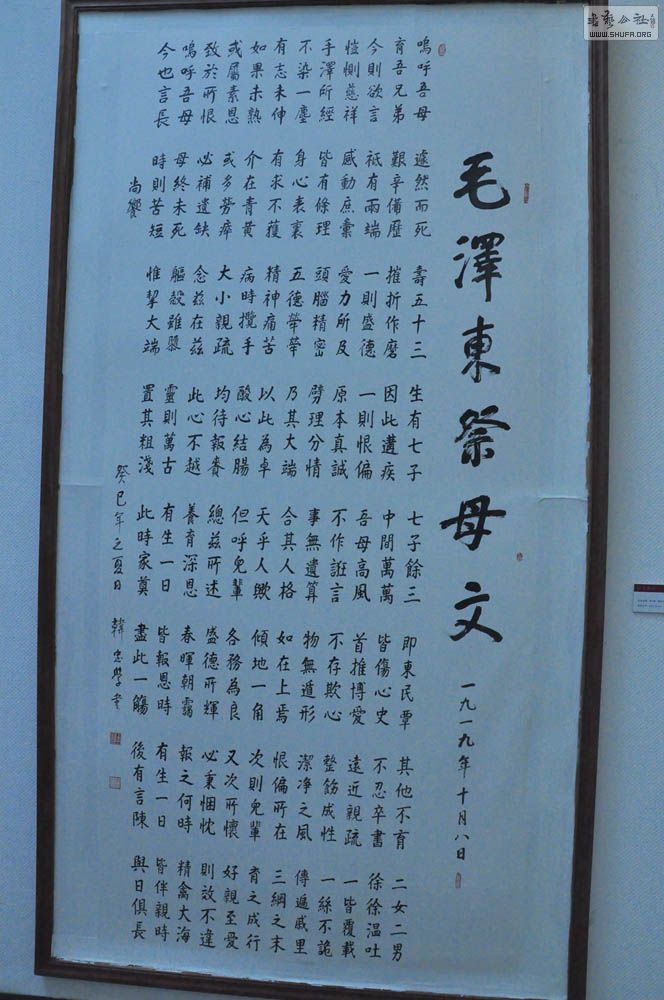 毛澤東祭母文 一九一九年十月八日
嗚呼吾母 遽然而死 壽五十三 生有七子 七子餘三 即東民覃 其他不育 二女二男
育吾兄弟 艱辛備歷 摧折作磨 因此遘疾 中間萬萬 皆傷心史 不忍卒書 徐徐溫吐
今則欲言 祗有兩端 一則盛德 一則恨偏 吾母高風 首推博愛 遠近親疏 一皆覆載
愷惻慈祥 感動庶彙 愛力所及 原本真誠 不作誑言 不存欺心 整飭成性 一絲不詭
手澤所經 皆有條理 頭腦精密 劈理分情 事無遺算 物無遁形 潔净之風 傳遍戚里
不染一塵 身心表裏 五德犖犖 乃其大端 合其人格 如在上焉 恨偏所在 三綱之末
有志未伸 有求不獲 精神痛苦 以此為卓 天乎人歟 傾地一角 次則兒輩 育之成行
如果未熟 介在青黃 病時攬手 酸心結腸 但呼兒輩 各務為良 又次所懷 好親至愛
或屬素恩 或多勞瘁 大小親疏 均待報賚 總茲所述 盛德所輝 必秉悃忱 則效不違
致於所恨 必補遺缺 念茲在茲 此心不越 養育深恩 春暉朝靄 報之何時 精禽大海
嗚呼吾母 母終未死 軀殼雖隳 靈則萬古 有生一日 皆報恩時 有生一日 皆伴親時
今也言長 時則苦短 惟挈大端 置其粗淺 此時家奠 盡此一觴 後有言陳 與日俱長
尚饗
癸巳年之夏日 韓忠學書
书艺公社
WWW.SHUFA.ORG